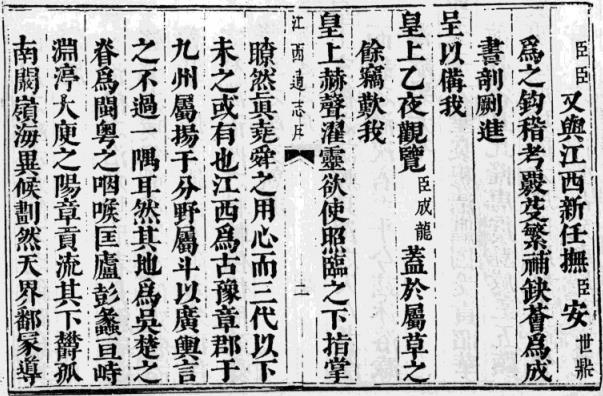 臣臣又與江西新任撫臣安世鼎
爲之鈎稽考覈芟繁補缺薈爲成
書剞劂進
呈以備我
皇上乙夜觀覽臣成龍蓋於屬草之
餘竊歎我
皇上赫聲濯靈欲使照臨之下指掌
江西通志序
二
瞭然眞堯舜之用心而三代以下
未之或有也江西爲古豫章郡于
九州屬揚于分野屬斗以廣輿言
之不過一隅耳然其地爲吳楚之
脊爲閩粤之咽喉匡廬彭蠡亘峙
淵渟大庾之陽章貢流其下欝孤
南闢嶺海異候劃然天界鄱冢導